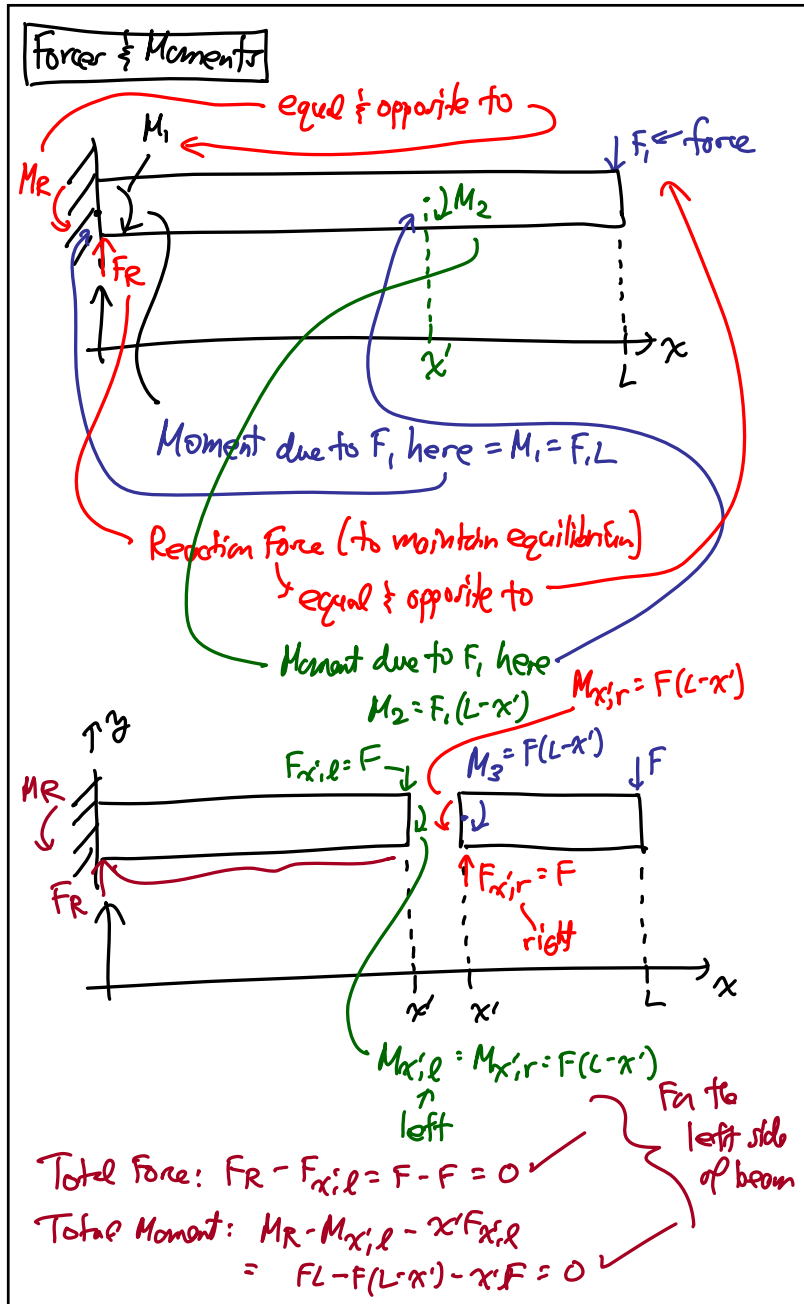 Forces & Moments
equal & opposite to
M₁
F₁ ← force
M_R
M₂
F_R
x'
L
x
Moment due to F₁ here = M₁ = F₁L
Reaction Force (to maintain equilibrium)
equal & opposite to
Moment due to F₁ here
M₂ = F₁(L-x')
M_x',r = F(L-x')
y
F_x',l = F
M₃ = F(L-x')
F
M_R
F_R
F_x',r = F
right
x'
x'
L
x
M_x',l = M_x',r = F(L-x')
left
For the
left side
of beam
Total Force: F_R - F_x',l = F - F = 0
Total Moment: M_R - M_x',l - x'F_x',l
= FL - F(L-x') - x'F = 0